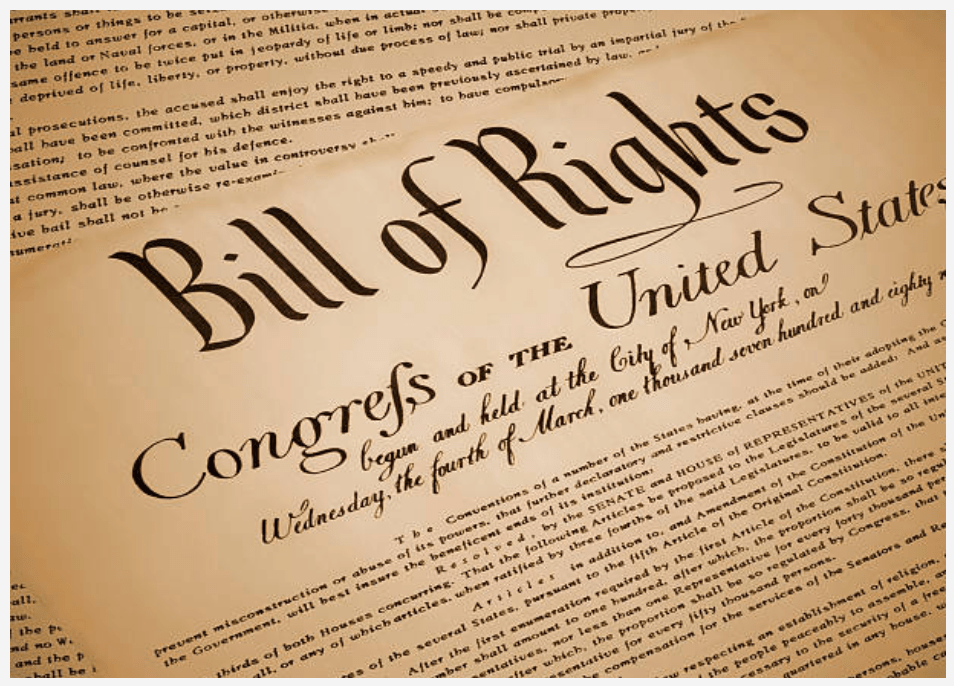 persons or things to be
be held to answer for a capital, or otherwise
the land or Naval forces, or in the Militia, when in actual
same offence to be twice put in jeopardy of life or limb; nor shall be
deprived of life, liberty, or property, without due process of law; nor shall private
prosecutions, the accused shall enjoy the right to a speedy and public trial by an impartial jury of the
have been committed, which district shall have been previously ascertained by law,
to be confronted with the witnesses against him; to have
assistance of counsel for his defence.
common law, where the value in controversy
a jury, shall be otherwise
bail shall not be
Bill of Rights
Congreſs OF THE United States
begun and held at the City of New York, on
Wednesday, the fourth of March, one thousand seven hundred and eighty
The Conventions of a number of the States having, at the time of their adopting the
misconstruction or abuse of its powers, that further declaratory and restrictive clauses should be added: And
the Government, will best insure the beneficent ends of its institution:
Resolved, by the SENATE and HOUSE of REPRESENTATIVES of the
thirds of both Houses concurring. That the following Articles be proposed to the Legislatures of the several
or any of which articles, when ratified by three fourths of the said Legislatures, to be valid to all
Articles in addition to, and Amendment of the Constitution of the
of the several States, pursuant to the fifth Article of the Original Constitution.
After the first enumeration required by the first Article of the Constitution, there
shall amount to one hundred, after which, the proportion shall be so
nor less than one Representative for every forty thousand
after which, the proportion shall be so regulated by Congress, that
for every fifty thousand persons.
compensation for the services of the Senators and
law respecting an establishment of religion,
the people peaceably to assemble,
to the security of a
quartered in any house,
persons,